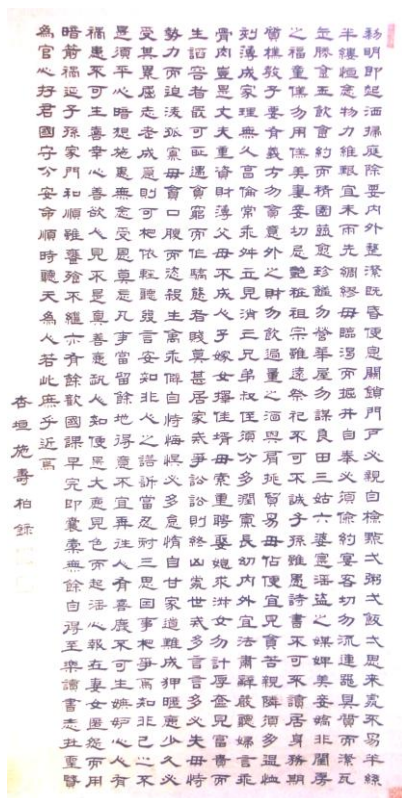 黎明即起洒掃庭除要內外整潔既昏便息關鎖門戶必親自檢點弌粥弌飯弌思來處不易半絲
半縷恒念物力維艱宜未雨先綢繆毋臨渴而掘井自奉必須儉約宴客切勿流連器具質而潔瓦
缶勝金玉飲食約而精園蔬愈珍饈勿營華屋勿謀良田三姑六婆實淫盜之媒婢美妾嬌非閨房
之福童僕勿用俊美妻妾切忌艷粧祖宗雖遠祭祀不可不誠子孫雖愚詩書不可不讀居身務期
質樸教子要有義方勿貪意外之財勿飲過量之酒與肩挑貿易毋佔便宜見貧苦親鄰須多溫恤
刻薄成家理無久享倫常乖舛立見消亡兄弟叔侄須分多潤寡長幼內外宜法肅辭嚴聽婦言乖
骨肉豈是丈夫重資財薄父母不成人子嫁女擇佳婿毋索重聘娶媳求淑女勿計厚奩見富貴而
生諂容者最可恥遇貧窮而作驕態者賤莫甚居家戒爭訟訟則終凶處世戒多言言多必失毋恃
勢力而迫凌孤寡毋貪口腹而恣殺生禽乖僻自恃悔誤必多怠惰自甘家道難成狎暱惡少久必
受其累屈志老成急則可相依輕聽發言安知非人之譖訴當忍耐三思因事相爭焉知非己之不
是須平心暗想施惠無念受恩莫忘凡事當留餘地得意不宜再往人有喜慶不可生妒嫉心人有
禍患不可生喜幸心善欲人見不是真善惡恐人知便是大惡見色而起淫心報在妻女匿怨而用
暗箭禍延子孫家門和順雖饔飧不繼亦有餘歡國課早完即囊橐無餘自得至樂讀書志在聖賢
為官心存君國守分安命順時聽天為人若此庶乎近焉
杏垣施壽柏錄